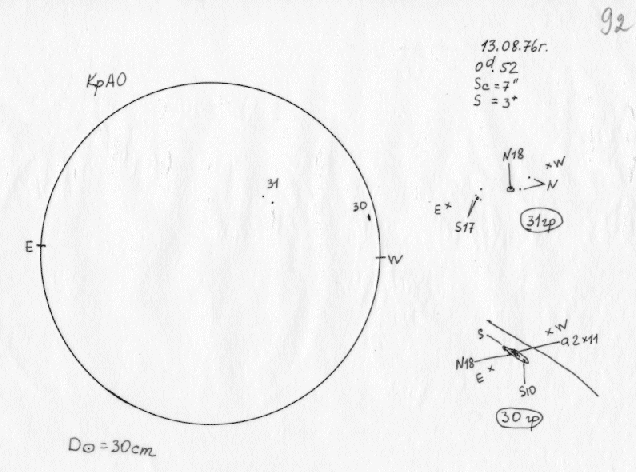 92
13.08.76г.
0ᵈ.52
Sc = 7"
S = 3*
КрАО
N18
×W
N
31
30
E×
S17
31гр
E
W
S
×W
q2×11
N18
E×
S10
30гр
D⊙ = 30cm